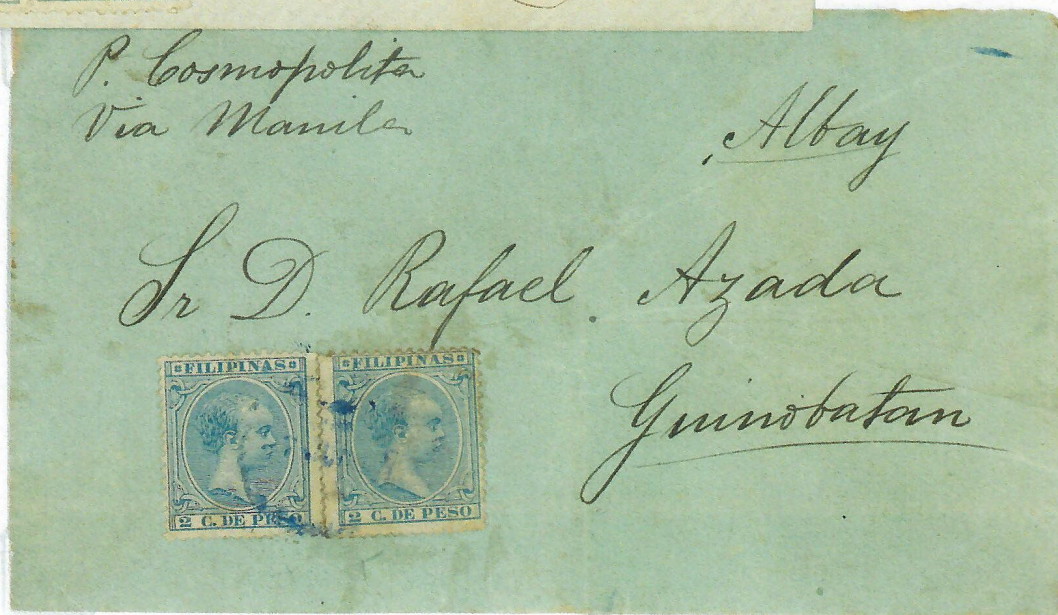 P. Cosmopolita
Via Manila
Albay
Sr D. Rafael Azada
Guinobatan
FILIPINAS
2 C. DE PESO
FILIPINAS
2 C. DE PESO